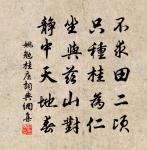 不求田二頃
只種桂為仁
坐與茲山對
靜中天地春
姚勉桂庄詞典網集